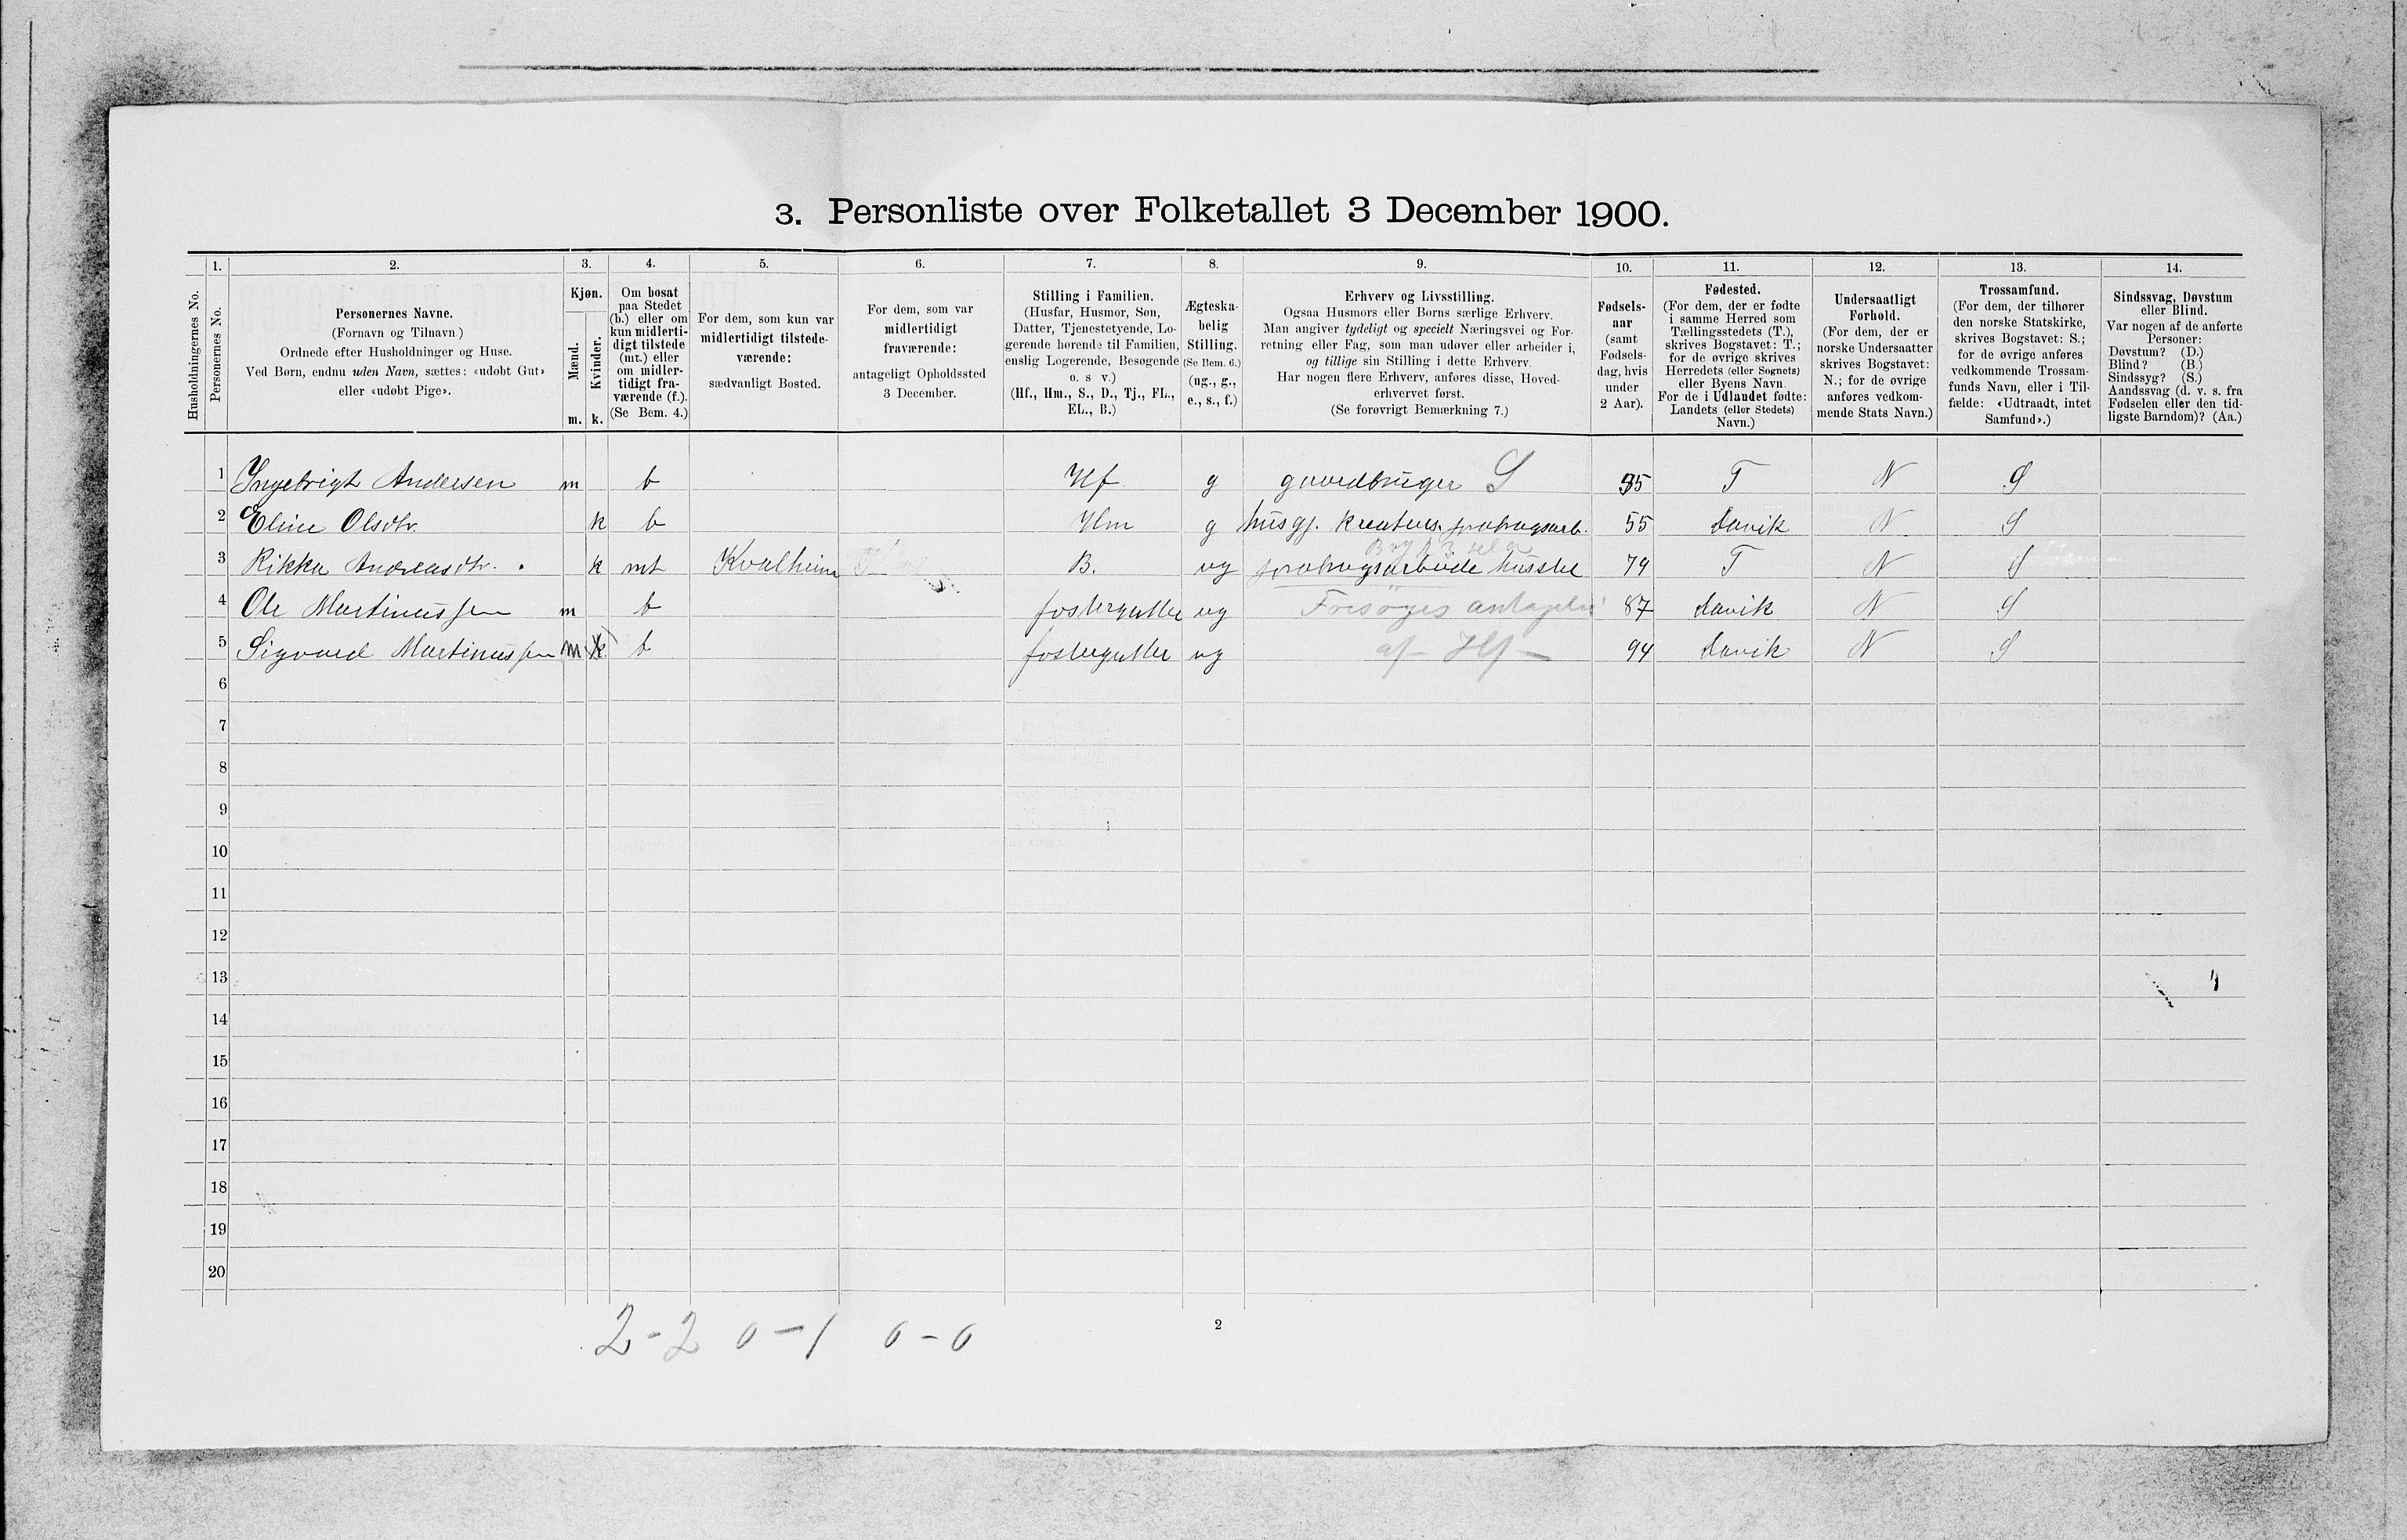 3. Personliste over Folketallet 3 December 1900.
Husholdningernes No.
1.
Personernes No.
2.
Personernes Navne.
(Fornavn og Tilnavn.)
Ordnede efter Husholdninger og Huse.
Ved Børn, endnu uden Navn, sættes: «udøbt Gut»
eller «udøbt Pige».
3.
Kjøn.
Mænd.
Kvinder.
m. k.
4.
Om bosat
paa Stedet
(b.) eller om
kun midlerti-
digt tilstede
(mt.) eller
om midler-
tidigt fra-
værende (f.).
(Se Bem. 4.)
5.
For dem, som kun var
midlertidigt tilstede-
værende:
sædvanligt Bosted.
6.
For dem, som var
midlertidigt
fraværende:
antageligt Opholdssted
3 December.
7.
Stilling i Familien.
(Husfar, Husmor, Søn,
Datter, Tjenestetyende, Lo-
gerende hørende til Familien,
enslig Logerende, Besøgende
o. s. v.)
(Hf., Hm., S., D., Tj., FL.,
EL., B.)
8.
Ægteska-
belig
Stilling.
(Se Bem. 6.)
(ug., g.,
e., s., f.)
9.
Erhverv og Livsstilling.
Ogsaa Husmors eller Børns særlige Erhverv.
Man angiver tydeligt og specielt Næringsvei og For-
retning eller Fag, som man udøver eller arbeider i,
og tillige sin Stilling i dette Erhverv.
Har nogen flere Erhverv, anføres disse, Hoved-
erhvervet først.
(Se forøvrigt Bemærkning 7.)
10.
Fødsels-
aar
(samt
Fødsels-
dag, hvis
under
2 Aar).
11.
Fødested.
(For dem, der er fødte
i samme Herred som
Tællingsstedets (T.),
skrives Bogstavet: T.;
for de øvrige skrives
Herredets (eller Sognets)
eller Byens Navn.
For de i Udlandet fødte:
Landets (eller Stedets)
Navn.)
12.
Undersaatligt
Forhold.
(For dem, der er
norske Undersaatter
skrives Bogstavet:
N.; for de øvrige
anføres vedkom-
mende Stats Navn.)
13.
Trossamfund.
(For dem, der tilhører
den norske Statskirke,
skrives Bogstavet: S.;
for de øvrige anføres
vedkommende Trossam-
funds Navn, eller i Til-
fælde: «Udtraadt, intet
Samfund».)
14.
Sindssvag, Døvstum
eller Blind.
Var nogen af de anførte
Personer:
Døvstum? (D.)
Blind? (B.)
Sindssyg? (S.)
Aandssvag (d. v. s. fra
Fødselen eller den tid-
ligste Barndom)? (Aa.)
1 Ingebrigt Andersen m b Hf g gaardbruger S 35 T N S
2 Eline Olsdtr. k b Hm g husgj. kreaturs. jordbrugsarb. 55 Davik N S
3 Rikka Andreasdtr. k mt Kvalheim B. ug jordbrugsarbeide husstel 79 T N S
4 Ole Martinussen m b fostergutter ug Forsørges antagelig 87 Davik N S
5 Sigvard Martinussen m k b fostergutter ug af Hf 94 Davik N S
6
7
8
9
10
11
12
13
14
15
16
17
18
19
20
2-2 0-1 0-0
2